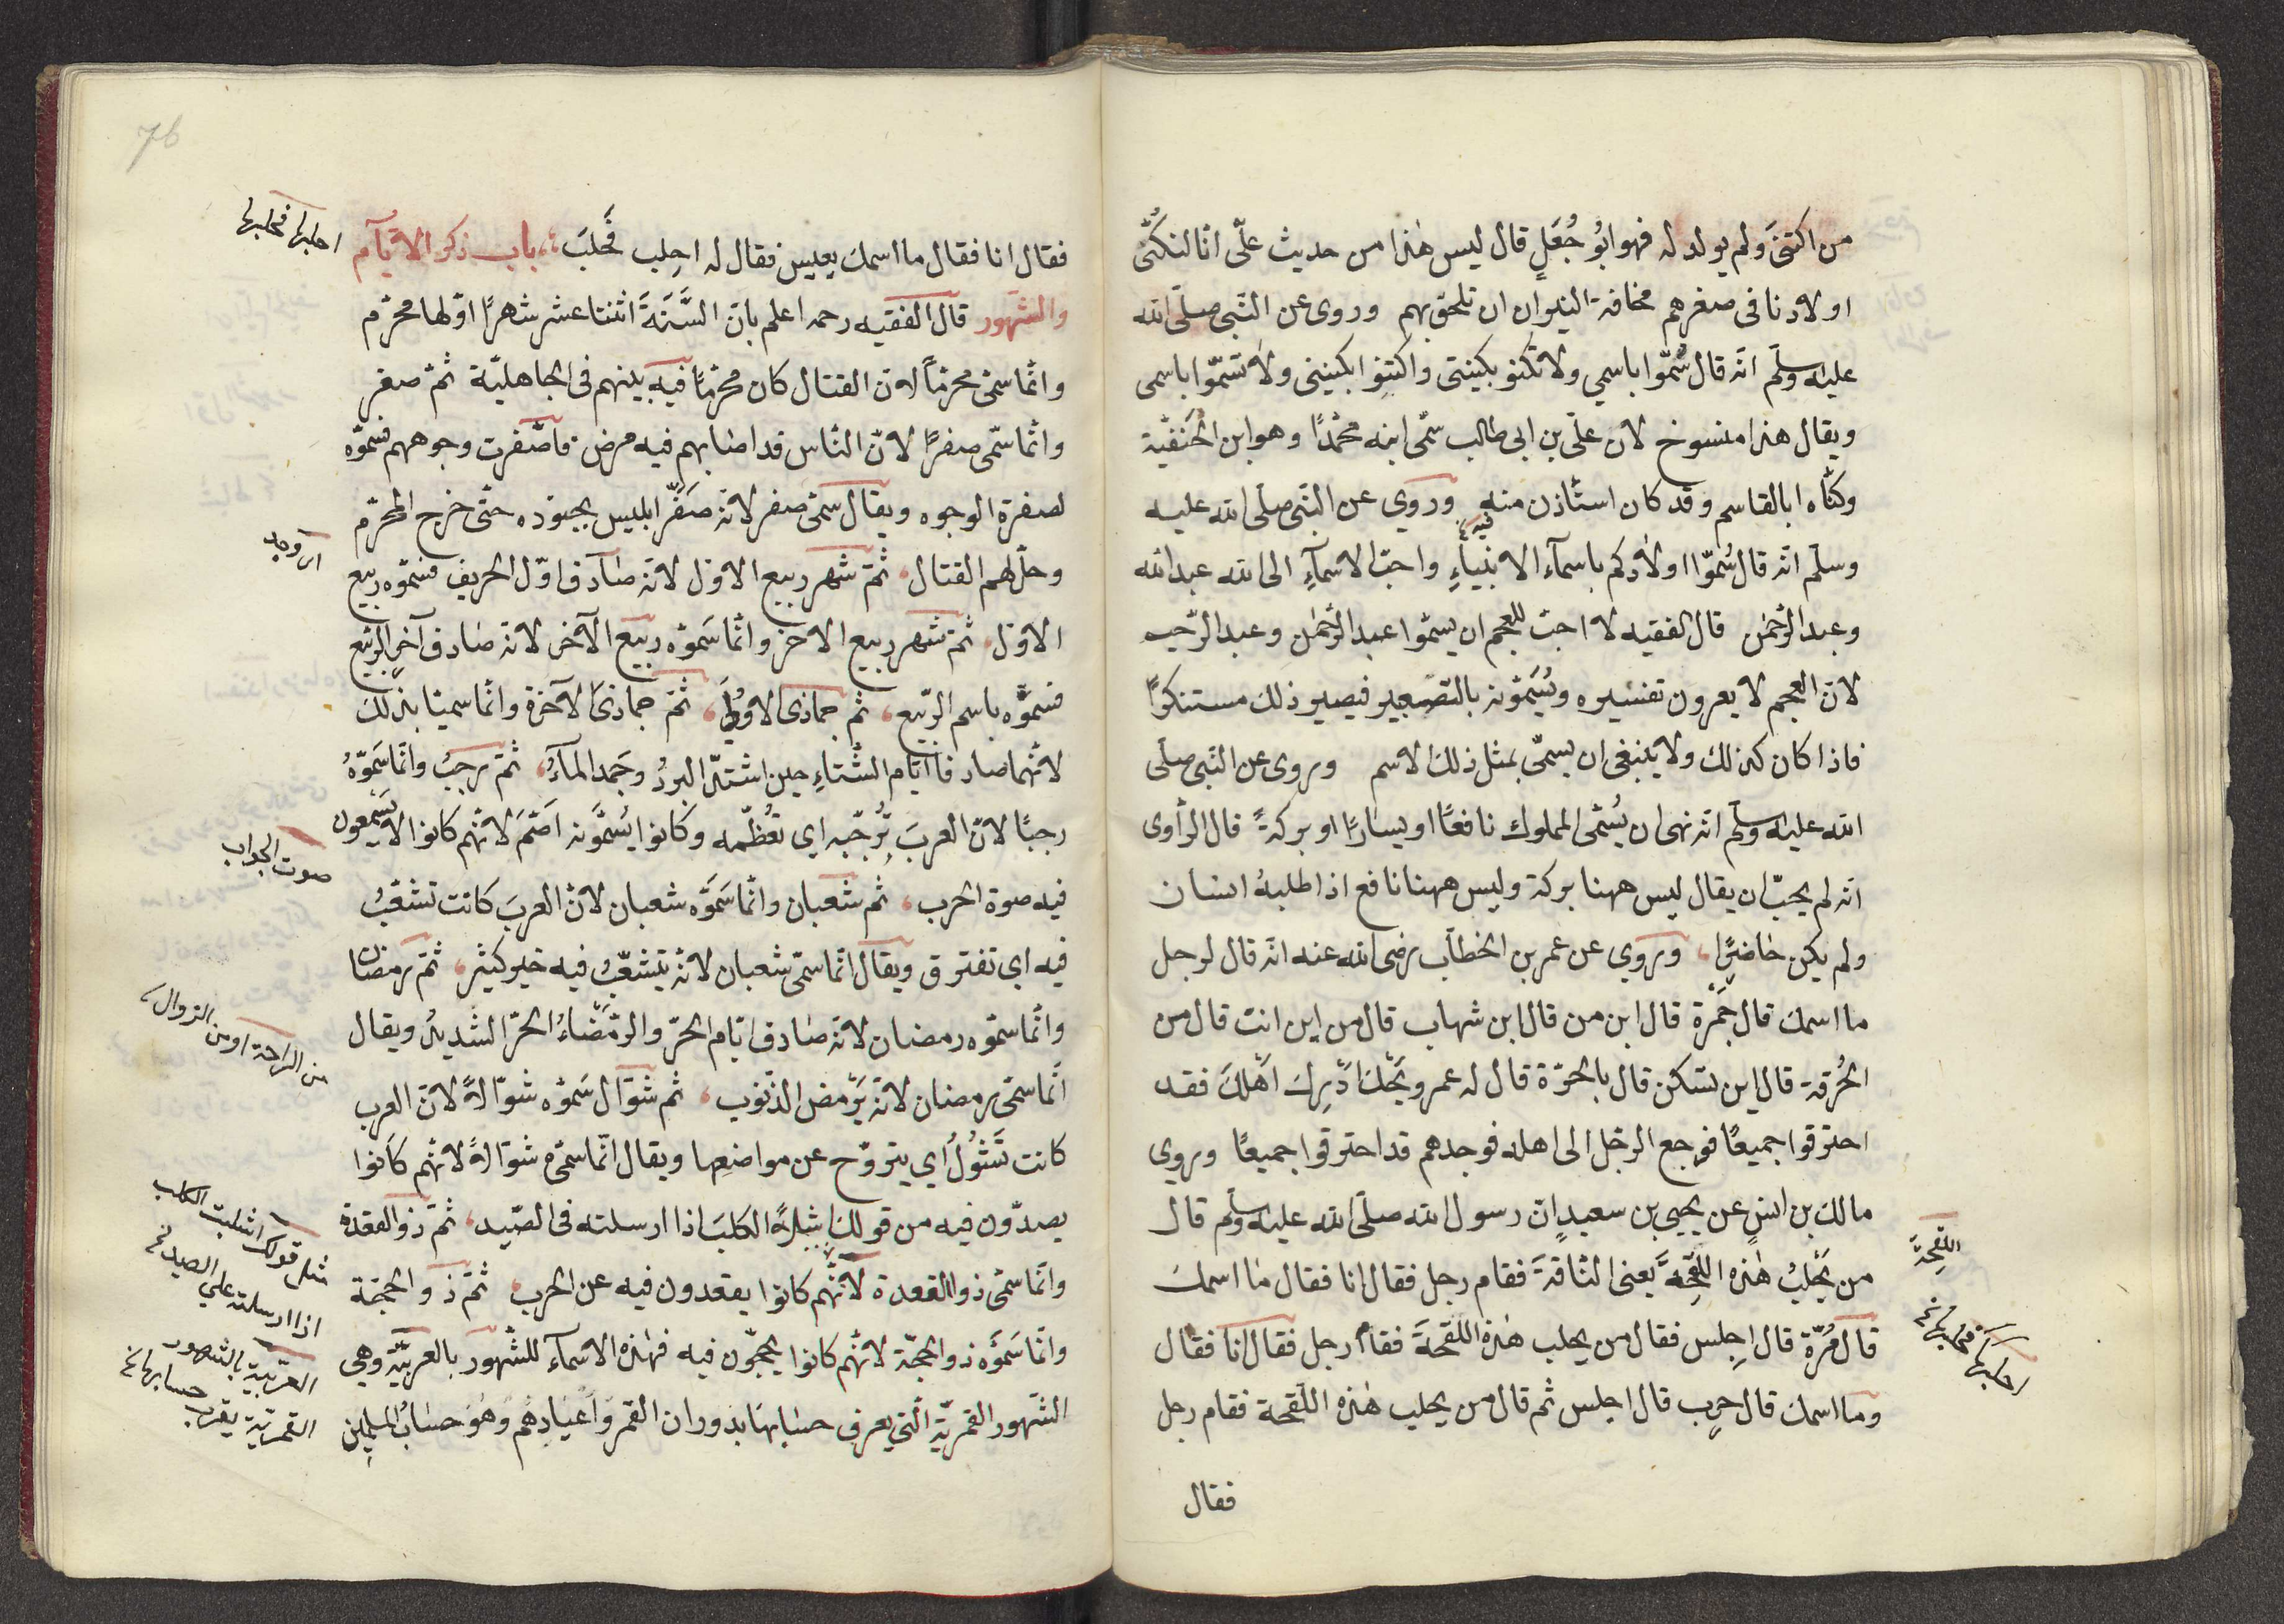 من اكتنى ولم يولد له فهو ابُو جُعَلٍ قال ليس هٰذا من حديث علّى انّا لنكُنّى
اولادنا فى صغرهم مخافة النبران ان تلحق بهم وروى عن النّبى صلّى الله
عليه وسلّم انّه قال سُمّوا باسمي ولا تكنو بكنيتى واكتنوا بكنيتى ولا تسمّوا باسمى
ويقال هذا منسوخ لان علّى بن ابى طالب سمّى ابنه محمّدًا وهو ابن الحَنفيّة
وكنّاه ابا القاسم وقد كان استأذن منه فيه وروي عن النّبى صلّى الله عليه
وسلّم انّه قال سُمّوا اولادكم باسمآء الانبيآءِ واحبّ الاسمآءِ الى الله عبد الله
وعبد الرّحمٰن قال الفقيه لا احبّ للعجم ان يسمّوا عبد الرّحمٰن وعبد الرّحيم
لانّ العجم لا يعرون تفسيره ويُسَمّونه بالتصغير فيصير ذلك مستنكرًا
فاذا كان كذلك ولا ينبغى ان يسمّى بمثل ذلك الاسم وروى عن النّبى صلّى
الله عليه وسلّم انّه نهى ان يُسُمّى المملوك نافعًا او يسارًا او بركةً قال الرّاوى
انّه لم يحبّ ان يقال ليس ههنا بركة وليس ههنا نافع اذا طلبهُ انسان
ولم يكن حاضرًا، وروي عن عمر بن الخطاّب رضى الله عنه انّه قال لرجل
ما اسمك قال جَمرة قال ابن من قال ابن شهاب قال من اين انت قال من
الحُرقة قال اين تسكن قال بالحرّة قال له عمر ويَحك ادّرِك اهلكَ فقد
احترقوا جميعًا فرجع الرجل الى اهله فوجدهم قد احترقوا جميعًا وروي
مالك بن انس عن يحيى بن سعيد انّ رسول الله صلّى الله عليه وسلّم قال
من يَحْلبُ هٰذه اللّقحةَ يعنى النّاقةَ فقام رجل فقال انا فقال ما اسمك
قال مُرّة قال اجلس فقال من يحلب هٰذه اللّقحةَ فقام رجل فقال انا فقال
وما اسمك قال حرب قال اجلس ثم قال من يحلب هٰذه اللّقحة فقام رجل
فقال
اللّقحةَ
احلبها فحلبها
76
فقال انا فقال ما اسمك يعيس فقال له احلِب فَحَلبَ، باب ذكر الايّآم
والشهور قال الفقيه رحمه اعلم بانّ السَّنَةَ اثنتا عشر شهرًا اوّلها محرّم
وانّما سمّى محرّمًا لانّ القتال كان محرّمًا فيه بينهم فى الجاهليّة ثمّ صفر
وانّما سمّى صفرًا لانّ النّاس قد اصابهم فيه مرض فاصفّرت وجوههم فسمّوه
لصفرة الوجوه ويقال سمّى صفر لانّه صَفّر ابليس بجنوده حتّى خرج المحرّم
وحلّ لهم القتال، ثمّ شهر ربيع الاوّل لانّه صادف اوّل الخريف فسمّوه ربيع
الاوّل، ثمّ شهر ربيع الاخر وانّما سَمّوه ربيع الآخر لانّه صادف آخر الرّبيع
فسمّوه باسم الرّبيع، ثم جماذى الاوُلٰى، ثمّ جماذى الآخرة وانّما سميتا بذلك
لانّهما صادفا ايّام الشّتاءِ حين اشتدّ البردُ وجَمد المآءُ، ثمّ رجبُ وانّما سَمّوهُ
رجبًا لانّ العربَ تُرَجّبه اى تعُظّمه وكانوا يُسمّونه اصَمّ لانّهم كانوا لا يسَمعون
فيه صوة الحرب، ثم شعبان وانّما سَمّوه شعبان لانّ العربَ كانت تشعّبُ
فيه اى تفترق ويقال انّما سمّى شعبان لانّه يتشعّبُ فيه خير كثير، ثمّ رمضان
وانّما سمّوه رمضان لانّه صادف ايّام الحرّ والرّمضَاءُ الحرّ الشديدُ ويقال
انّما سمّى رمضان لانّه يَرْمض الذّنوب، ثم شوّال سَمّوه شوّالاً لانّ العرب
كانت تَشولُ اي يتروّح عن مواضعها ويقال انّما سمّى شوّالاً لانّهم كانوا
يصدّون فيه من قولك اشلت الكلبَ اذا ارسلته فى الصّيد، ثمّ ذو القعدة
وانّما سمّى ذو القعدة لانّهم كانوا يقعدون فيه عن الحرب، ثمّ ذو الحجّة
وانّما سَمّوه ذو الحجّة لانّهم كانوا يحجّون فيه فهٰذه الاسمآء للشّهور بالعربيّة وهى
الشّهور القمريّة الّتي يعرف حسابها بدوران القمر واَعيادهُم وهُوَ حسابُ المسلمِين
احلبها فحلبها
اى وجد
صوت الجواب
من الراحة او من الزوال
مثل قولك اشليت الكلب
اذا ارسلته على الصيد
العربيّة بالشهور
القمريّة يعرف حسابها